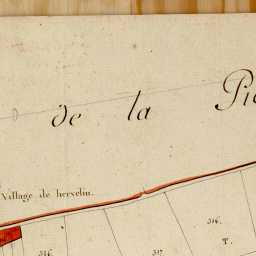 de la
Village de hervelin.
316.
316
317
T.